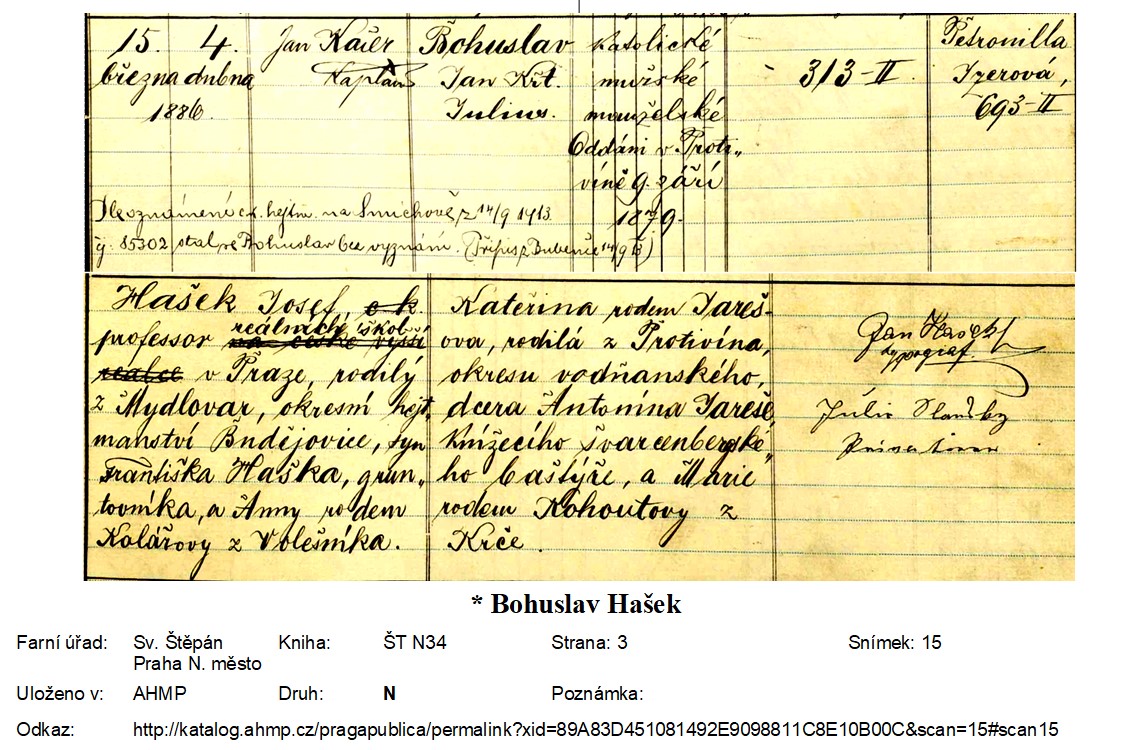 15. 4. Jan Kaier Bohuslav katolické Petronilla
března dubna Kaplan Jan Křt. mužské 313-II. Izerová,
1886. Julius. manželské 693-II
Oddáni v Proti„
víně 9. září
Dle oznámení c.k. hejtm. na Smíchově, z 14/9 1913. 1879.
č. 85302 stal se Bohuslav bez vyznání. (Přípis z Dubenče 14/9 13)
Hašek Josef c. k. Kateřina rodem Jareš-
reálních škol
professor na české vyšší ova, rodilá z Protivína, Jan Hašek
reálce v Praze, rodilý okresu vodňanského, typograf.
z Mydlovar, okresní hejt„ dcera Antonína Jareše,
manství Budějovice, syn knížecího švarcenberské„
Františka Haška, grun„ ho baštýře, a Marie
tovníka, a Anny rodem rodem Kohoutovy z
Kolářovy z Volešníka. Krče.
* Bohuslav Hašek
Farní úřad: Sv. Štěpán Kniha: ŠT N34 Strana: 3 Snímek: 15
Praha N. město
Uloženo v: AHMP Druh: N Poznámka:
Odkaz: http://katalog.ahmp.cz/pragapublica/permalink?xid=89A83D451081492E9098811C8E10B00C&scan=15#scan15